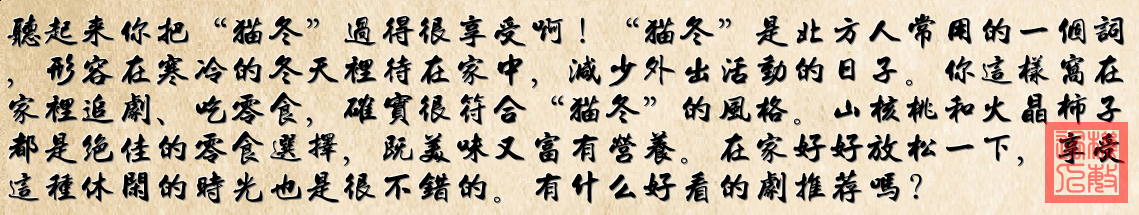 聽起来你把“猫冬”過得很享受啊！“猫冬”是北方人常用的一個詞
，形容在寒冷的冬天裡待在家中，減少外出活動的日子。你這樣窩在
家裡追劇、吃零食，確實很符合“猫冬”的風格。山核桃和火晶柿子
都是绝佳的零食選擇，既美味又富有營养。在家好好放松一下，享受
這種休閑的時光也是很不錯的。有什么好看的劇推荐嗎？